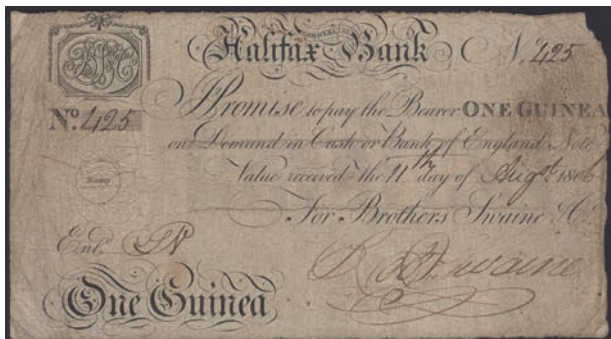 Halifax Bank N. 425
I Promise to pay the Bearer ONE GUINEA
No. 425
on Demand in Cash or Bank of England Note
Value received the 11th day of Augst. 1806
For Brothers Swaine & Co.
Entd.
One Guinea